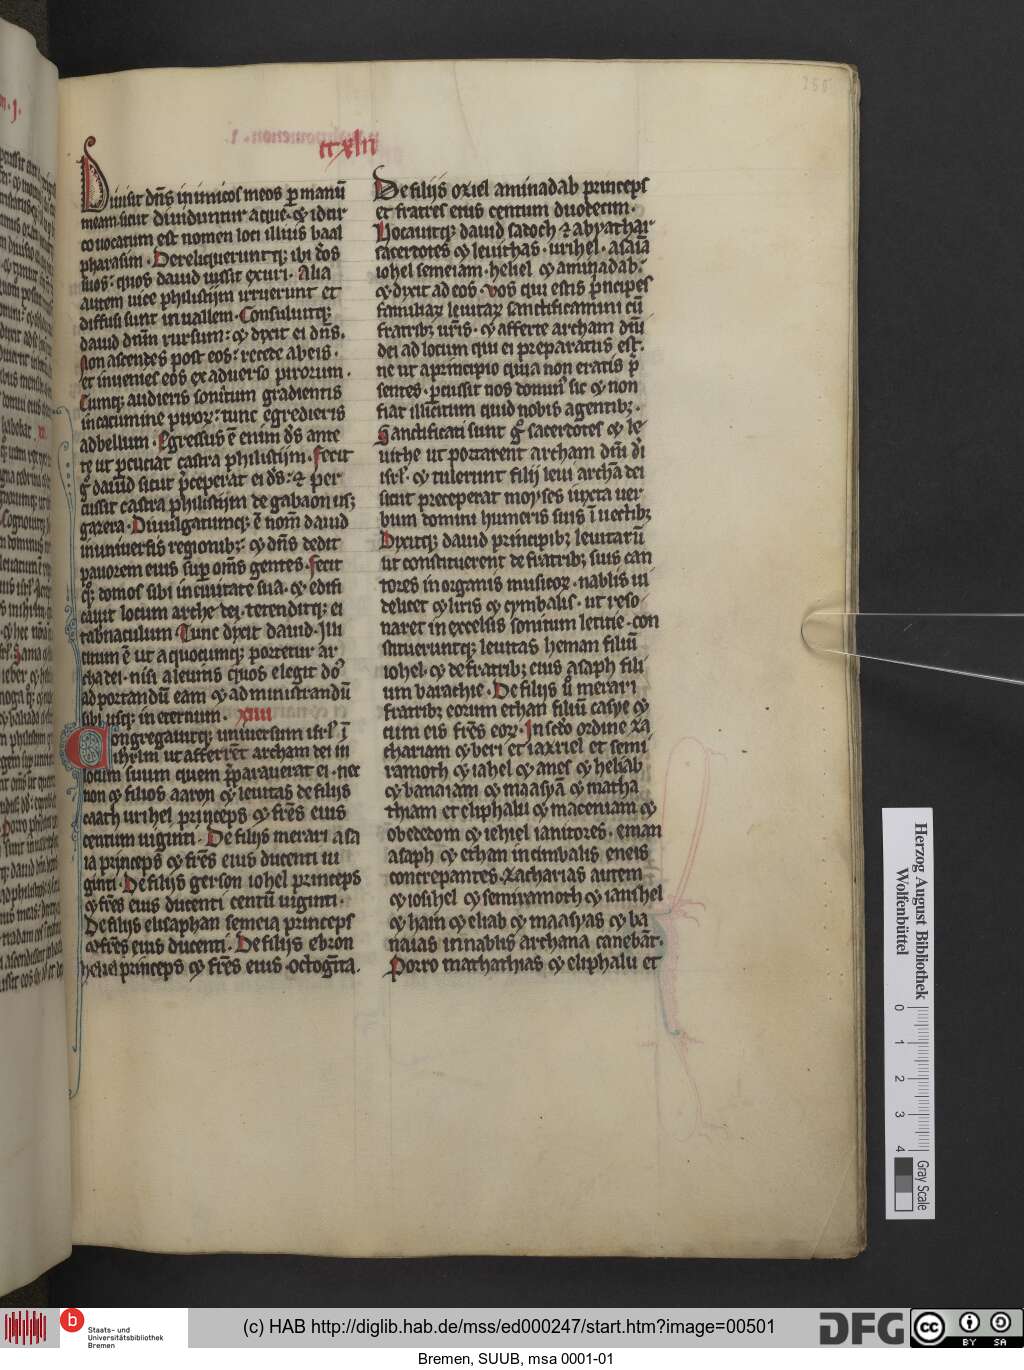 ccxlii
Diuisit dn̄s inimicos meos ꝑ manū
meam sicut diuiduntur aque · ⁊ idcir
co uocatum est nomen loci illius baal
pharasim · Dereliqueruntq; ibi d̄os
suos: quos dauid iussit exuri · Alia
autem uice philistijm irruerunt et
diffusi sunt in uallem · Consuluitq;
dauid dnm̄ rursum: ⁊ dixit ei dn̄s.
Non ascendes post eos: recede ab eis ·
et inuenies eos ex aduerso pirorum ·
Cumq; audieris sonitum gradientis
in cacumine piroꝝ: tunc egredieris
ad bellum · Egressus ē enim d̄s ante
te ut ꝑcuciat castra philistijm · Fecit
g̊ dauid sicut p̄ceperat ei d̄s: ⁊ per
cussit castra philistijm de gabaon usꝫ
gazera · Diuulgatumq; ē nom̄ dauid
in uniuersis regionibꝫ: ⁊ dn̄s dedit
pauorem eius suꝑ om̄s gentes · Fecit
q; domos sibi in ciuitate sua · ⁊ edifi
cauit locum arche dei · tetenditq; ei
tabnaculum Tunc dixit dauid · Illi
citum ē ut a quocumq; portetur ar
cha dei · nisi a leuitis quos elegit do
ad portandū eam ⁊ ad ministrandū
sibi usq; in eternum · xiiii
Congregauitq; uniuersum isrl̄ ī
ihrl̄m ut afferret̄ archam dei in
locum suum quem p̄parauerat ei · nec
non ⁊ filios aaron ⁊ leuitas de filijs
caath urihel princeps ⁊ fr̄es eius
centum uiginti · De filijs merari asa
ia princeps ⁊ fr̄es eius ducenti ui
ginti · De filijs gerson iohel princeps
⁊ fr̄es eius ducenti centū uiginti ·
De filijs elisaphan semeia princeps
⁊ fr̄es eius ducenti · De filijs ebron
heliel princeps ⁊ fr̄es eius · octogīta.
De filijs oziel aminadab princeps
et fratres eius centum duodecim ·
Uocauitq; dauid sadoch ⁊ abyathar
sacerdotes ⁊ leuithas · urihel · asaiā
iohel semeiam · heliel ⁊ aminadab:
⁊ dixit ad eos · Vos qui estis p̄ncipes
familiaꝝ leuitaꝝ sanctificamini cū
fratribꝫ ur̄is · ⁊ afferte archam dnī
dei ad locum qui ei preparatus est.
ne ut a principio quia non eratis p̄
sentes · ꝑcussit nos domin̄ sic ⁊ non
fiat illicitum quid nobis agentibꝫ ·
Sanctificati sunt g̊ sacerdotes ⁊ le
uithe ut portarent archam dnī d̄i
isrl̄ · ⁊ tulerunt filij leui archā dei
sicut preceperat moyses iuxta uer
bum domini humeris suis ī uectibꝫ
Dixitq; dauid principibꝫ leuitarū
ut constituerent de fratribꝫ suis can
tores in organis musicoꝝ · nablis ui
delicet ⁊ liris ⁊ cymbalis · ut reso
naret in excelsis sonitum leticie · Con
stitueruntq; leuitas heman filiū
iohel · ⁊ de fratribꝫ eius asaph fili
um barachie · De filijs ů merari
fratribꝫ eorum ethan filiū casye ⁊
cum eis fr̄es eoꝝ · In sc̄do ordine za
chariam ⁊ beri et iaxriel et semi
ramoth ⁊ iahel ⁊ anes ⁊ heliab
⁊ banaiam ⁊ maasyā ⁊ matha
thiam et eliphalu ⁊ maceniam ⁊
obededom ⁊ iehiel ianitores · eman
asaph ⁊ ethan in cimbalis eneis
concrepantes. Zacharias autem
⁊ iosihel ⁊ semiramoth ⁊ ianihel
⁊ ham ⁊ eliab ⁊ maasyas ⁊ ba
naias in nablis archana canebāt.
Porro mathathias ⁊ eliphalu et
Herzog August Bibliothek
Wolfenbüttel
0 1 2 3 4
Gray Scale
b Staats- und
Universitätsbibliothek
Bremen
(c) HAB http://diglib.hab.de/mss/ed000247/start.htm?image=00501
DFG
cc BY SA
Bremen, SUUB, msa 0001-01